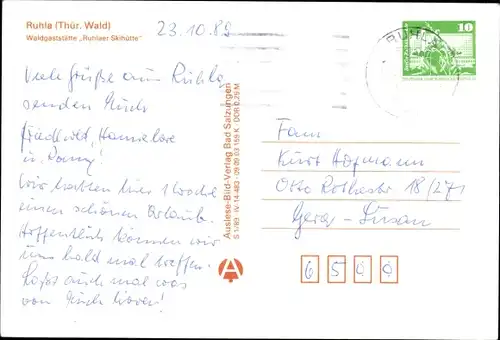 Ruhla (Thür. Wald)
Waldgaststätte „Ruhlaer Skihütte"
23.10.89
RUHLA
10
Viele Grüße aus Ruhla
senden Euch
Friedhold, Hannelore
u. Ronny!
Wir hatten hier 1 Woche
einen schönen Urlaub.
Hoffentlich können wir
uns bald mal treffen.
Laßt auch mal was
von Euch hören!
Auslese-Bild-Verlag Bad Salzungen
S 1/89 IV-14-483 09 09 03 159 K DDR 0,25 M
A
Fam.
Kurt Hofmann
Otto Rothestr 18/271
Gera-Lusan
6500